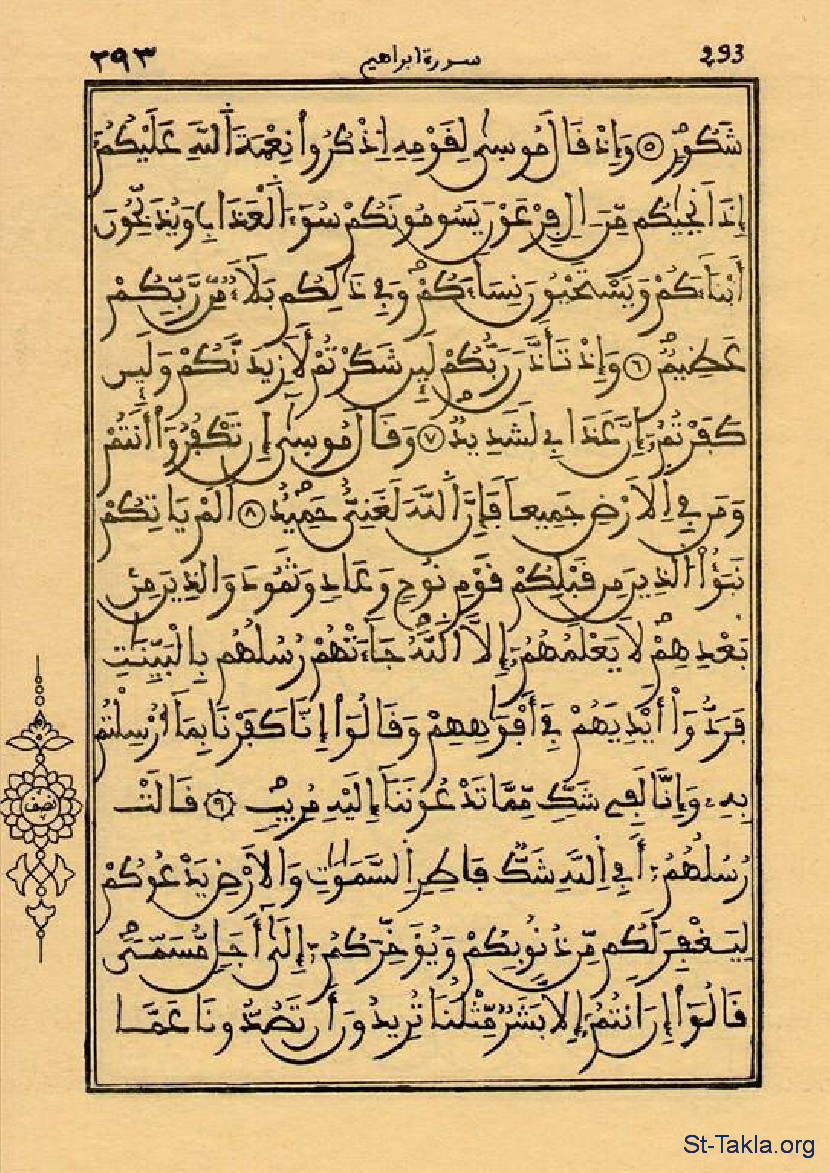 ٢٩٣ سورة ابراهيم 293
شَكُورٍ ٥ وَإِذْ قَالَ مُوسٰى لِقَوْمِهِ اِذْكُرُوا نِعْمَةَ اَ۬للَّهِ عَلَيْكُمُۥ
إِذَ اَنجٰيكُم مِّنَ اٰلِ فِرْعَوْنَ يَسُومُونَكُمْ سُوٓءَ اَ۬لْعَذَابِ وَيُذَبِّحُونَ
أَبْنَآءَكُمْ وَيَسْتَحْيُونَ نِسَآءَكُمْ وَفِي ذٰلِكُم بَلَآءٌ مِّن رَّبِّكُمْ
عَظِيمٌ ٦ وَإِذْ تَأَذَّنَ رَبُّكُمْ لَئِن شَكَرْتُمْ لَأَزِيدَنَّكُمْ وَلَئِن
كَفَرْتُمُۥٓ إِنَّ عَذَابِي لَشَدِيدٌ ٧ وَقَالَ مُوسٰىٓ إِن تَكْفُرُوٓا أَنتُمْ
وَمَن فِي اِ۬لْأَرْضِ جَمِيعاً فَإِنَّ اَ۬للَّهَ لَغَنِيٌّ حَمِيدٌ ٨ أَلَمْ يَاتِكُمْ
نَبَؤُا اُ۬لذِينَ مِن قَبْلِكُمْ قَوْمِ نُوحٍ وَعَادٍ وَثَمُودَ وَالذِينَ مِنۢ
بَعْدِهِمْ لَا يَعْلَمُهُمُۥٓ إِلَّا اَ۬للَّهُ جَآءَتْهُمْ رُسُلُهُم بِالْبَيِّنٰتِ
فَرَدُّوٓا أَيْدِيَهُمْ فِےٓ أَفْوٰهِهِمْ وَقَالُوٓا إِنَّا كَفَرْنَا بِمَآ أُرْسِلْتُم
بِهِۦ وَإِنَّا لَفِے شَكٍّ مِّمَّا تَدْعُونَنَآ إِلَيْهِ مُرِيبٍ ٩ قَالَتْ
رُسُلُهُمُۥٓ أَفِي اِ۬للَّهِ شَكٌّ فَاطِرِ اِ۬لسَّمٰوٰتِ وَالْأَرْضِ يَدْعُوكُمْ
لِيَغْفِرَ لَكُم مِّن ذُنُوبِكُمْ وَيُؤَخِّرَكُمُۥٓ إِلَىٰٓ أَجَلٍ مُّسَمًّى
قَالُوٓا إِنَ اَنتُمُۥٓ إِلَّا بَشَرٌ مِّثْلُنَا تُرِيدُونَ أَن تَصُدُّونَا عَمَّا
نصف
St-Takla.org